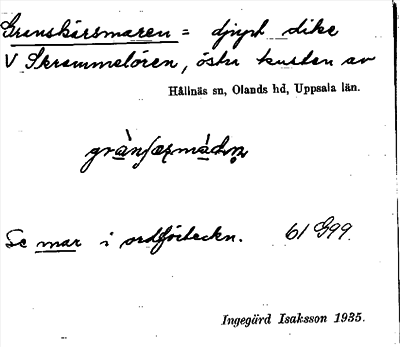 Granskärsmaren = djupt dike
V Skrammelören, östra kusten av
Hållnäs sn, Olands hd, Uppsala län.
Se mar i ordförteckn. 61 G99.
Ingegärd Isaksson 1935.